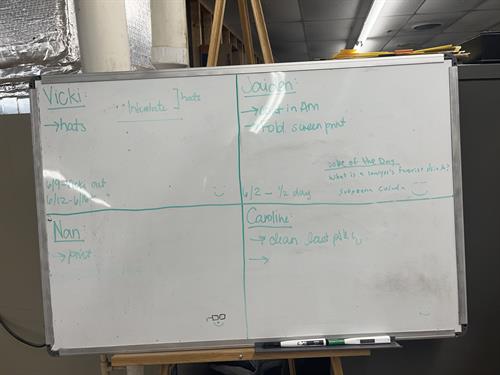 Vicki:
→ hats
Inkulate ] hats
6/9 - Vicki out
6/12 - 6/16
Jaiden:
→ in Ann
→ fold screenprint
Joke of the Day
What is a lawyer's favorite drink?
Subpoena colada
6/2 - 1/2 day
Nan:
→ print
Caroline:
→ clean last
→